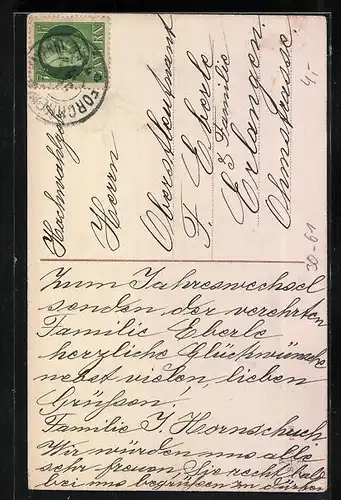 BAYERN
FORCHHEIM
Hochwohlgeb.
Herrn
Oberstleutnant
F. Eberle
& Familie
Erlangen.
Ohmstrasse.
4,-
30-61
Zum Jahreswechsel
senden der verehrten
Familie Eberle
herzliche Glückwünsche
nebst vielen lieben
Grüssen.
Familie J. Hornschuch
Wir würden uns alle
sehr freuen, Sie recht bald
bei uns begrüßen zu dürfen